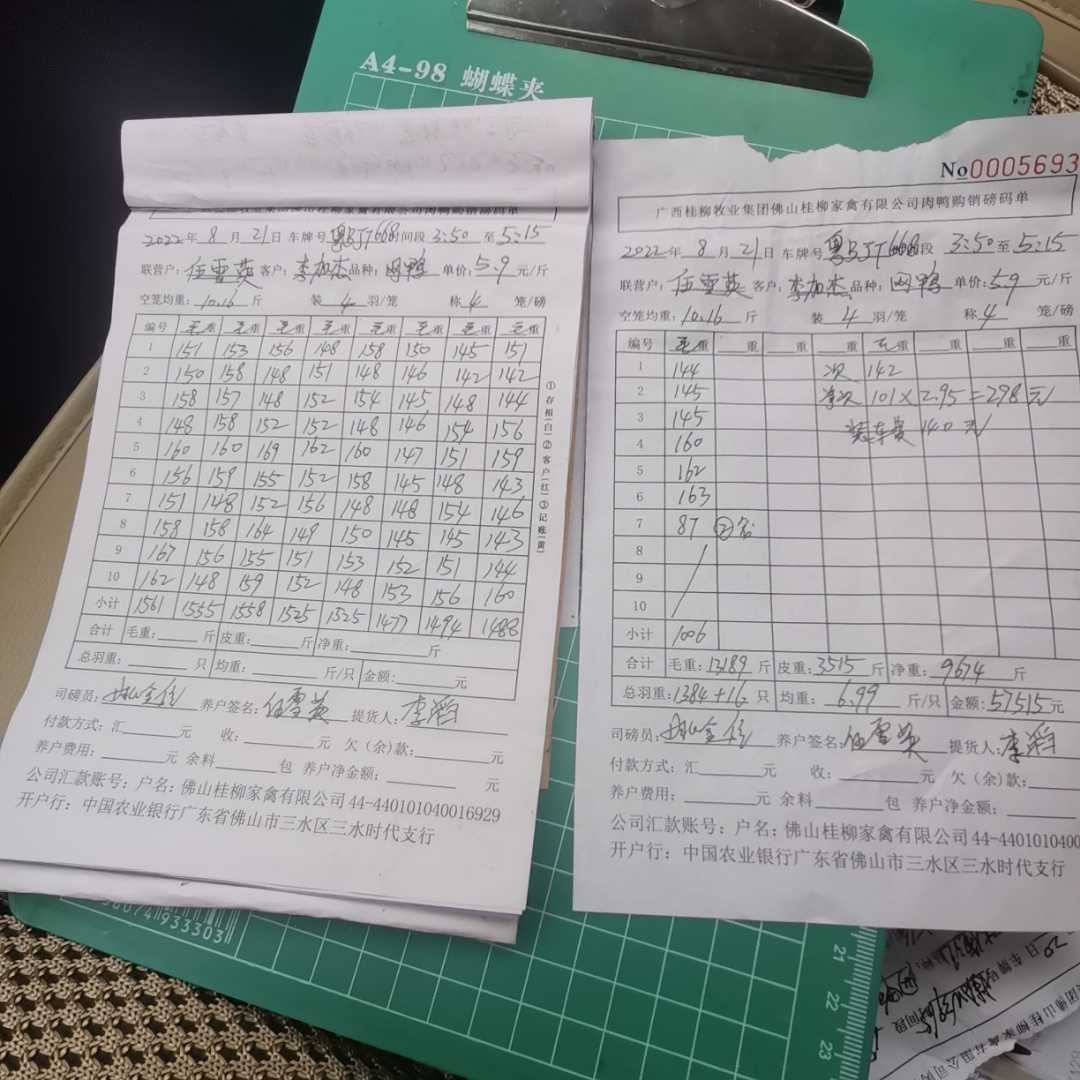 A4-98 蝴蝶夹
2022年 8 月 21日 车牌号 粤BJT668 时间段 3:50 至 5:15
联营户: 任雪英 客户: 李加杰 品种: 肉鸭 单价: 5.9 元/斤
空笼均重: 10.16 斤 装 4 羽/笼 称 4 笼/磅
编号 毛重 毛重 毛重 毛重 毛重 毛重 毛重 毛重
1 151 153 156 148 158 150 145 151
2 150 158 148 151 148 146 142 142
3 158 157 148 152 154 145 148 144
4 148 158 152 152 148 146 154 156
5 160 160 169 162 160 147 151 159
6 156 159 155 152 158 145 148 143
7 151 148 152 156 148 148 154 146
8 158 158 164 149 150 145 145 143
9 167 156 155 151 153 152 151 144
10 162 148 159 152 148 153 156 160
小计 1561 1555 1558 1525 1525 1477 1494 1488
合计 毛重: 斤 皮重: 斤 净重: 斤
总羽重: 只 均重: 斤/只 金额: 元
司磅员: 养户签名: 任雪英 提货人: 李滔
付款方式: 汇 元 收: 元 欠(余)款: 元
养户费用: 元 余料 包 养户净金额: 元
公司汇款账号: 户名: 佛山桂柳家禽有限公司 44-440101040016929
开户行: 中国农业银行广东省佛山市三水区三水时代支行
①存根(白)②客户(红)③记账(黄)
No0005693
广西桂柳牧业集团佛山桂柳家禽有限公司肉鸭购销磅码单
2022年 8 月 21日 车牌号 粤BJT668 段 3:50 至 5:15
联营户: 任雪英 客户: 李加杰 品种: 肉鸭 单价: 5.9 元/斤
空笼均重: 10.16 斤 装 4 羽/笼 称 4 笼/磅
编号 毛重 重 重 重 毛重 重 重 重
1 144 次 142
2 145 101×2.95=298元
3 145 装车费 140元
4 160
5 162
6 163
7 87
8
9
10
小计 1006
合计 毛重: 13189 斤 皮重: 3515 斤 净重: 9674 斤
总羽重: 1384+16 只 均重: 6.99 斤/只 金额: 57515 元
司磅员: 养户签名: 任雪英 提货人: 李滔
付款方式: 汇 元 收: 元 欠(余)款:
养户费用: 元 余料 包 养户净金额:
公司汇款账号: 户名: 佛山桂柳家禽有限公司 44-4401010400
开户行: 中国农业银行广东省佛山市三水区三水时代支行
933303
21
22
23